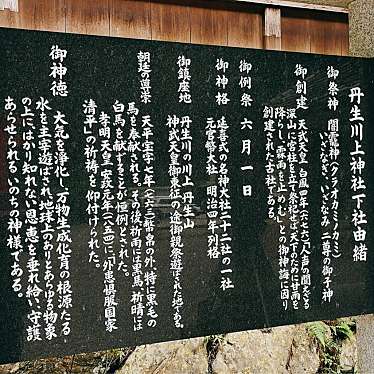 丹生川上神社下社由緒
御祭神 闇龗神(クラオカミノカミ)
いざなぎ・いざなみ二尊の御子神
御創建 天武天皇白鳳四年(六七六)「人声の聞えざる
深山に宮柱を立て祭祀せば、天下のために甘雨を
降らし霖雨を止めむ」との御神誨に因り
創建された古社である。
御例祭 六月一日
御神格 延喜式の名神大社二十二社の一社
元官幣大社 明治四年列格
御鎮座地 丹生の川の川上 丹生山
神武天皇御東征の途御親祭遊ばされた地である。
朝廷の尊崇 天平宝字七年(七六三)幣帛の外、特に黒毛の
馬を奉献され、その後祈雨には黒馬、祈晴には
白馬を献ずることが恒例とされた。
孝明天皇 安政元年(一八五四)「外患惧服国家
清平」の祈祷を仰付けられた。
御神徳 大気を浄化し、万物生成化育の根源たる
水を主宰遊ばされ、地球上のありとあらゆる物象
の上にはかり知れない恩恵を垂れ給い、守護
あらせられるいのちの神様である。